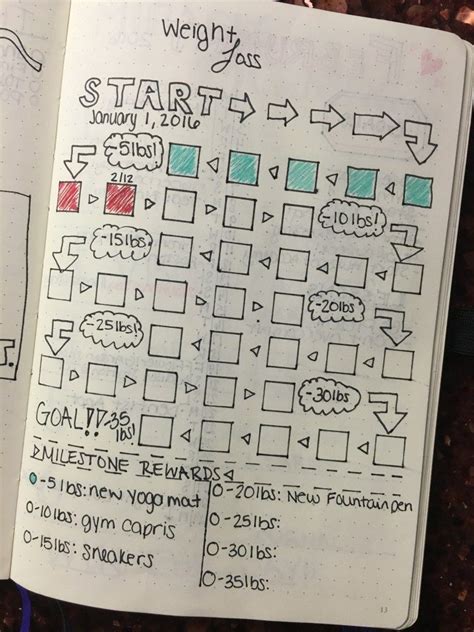 Weight
Loss
START
January 1, 2016
-5lbs!
2/12
-10lbs!
-15lbs!
-20lbs!
-25lbs!
-30lbs
GOAL!! -35
lbs!
MILESTONE REWARDS
-5 lbs: new yoga mat
0-10lbs: gym capris
0-15lbs: sneakers
0-20lbs: New Fountain pen
0-25lbs:
0-30lbs:
0-35lbs:
13